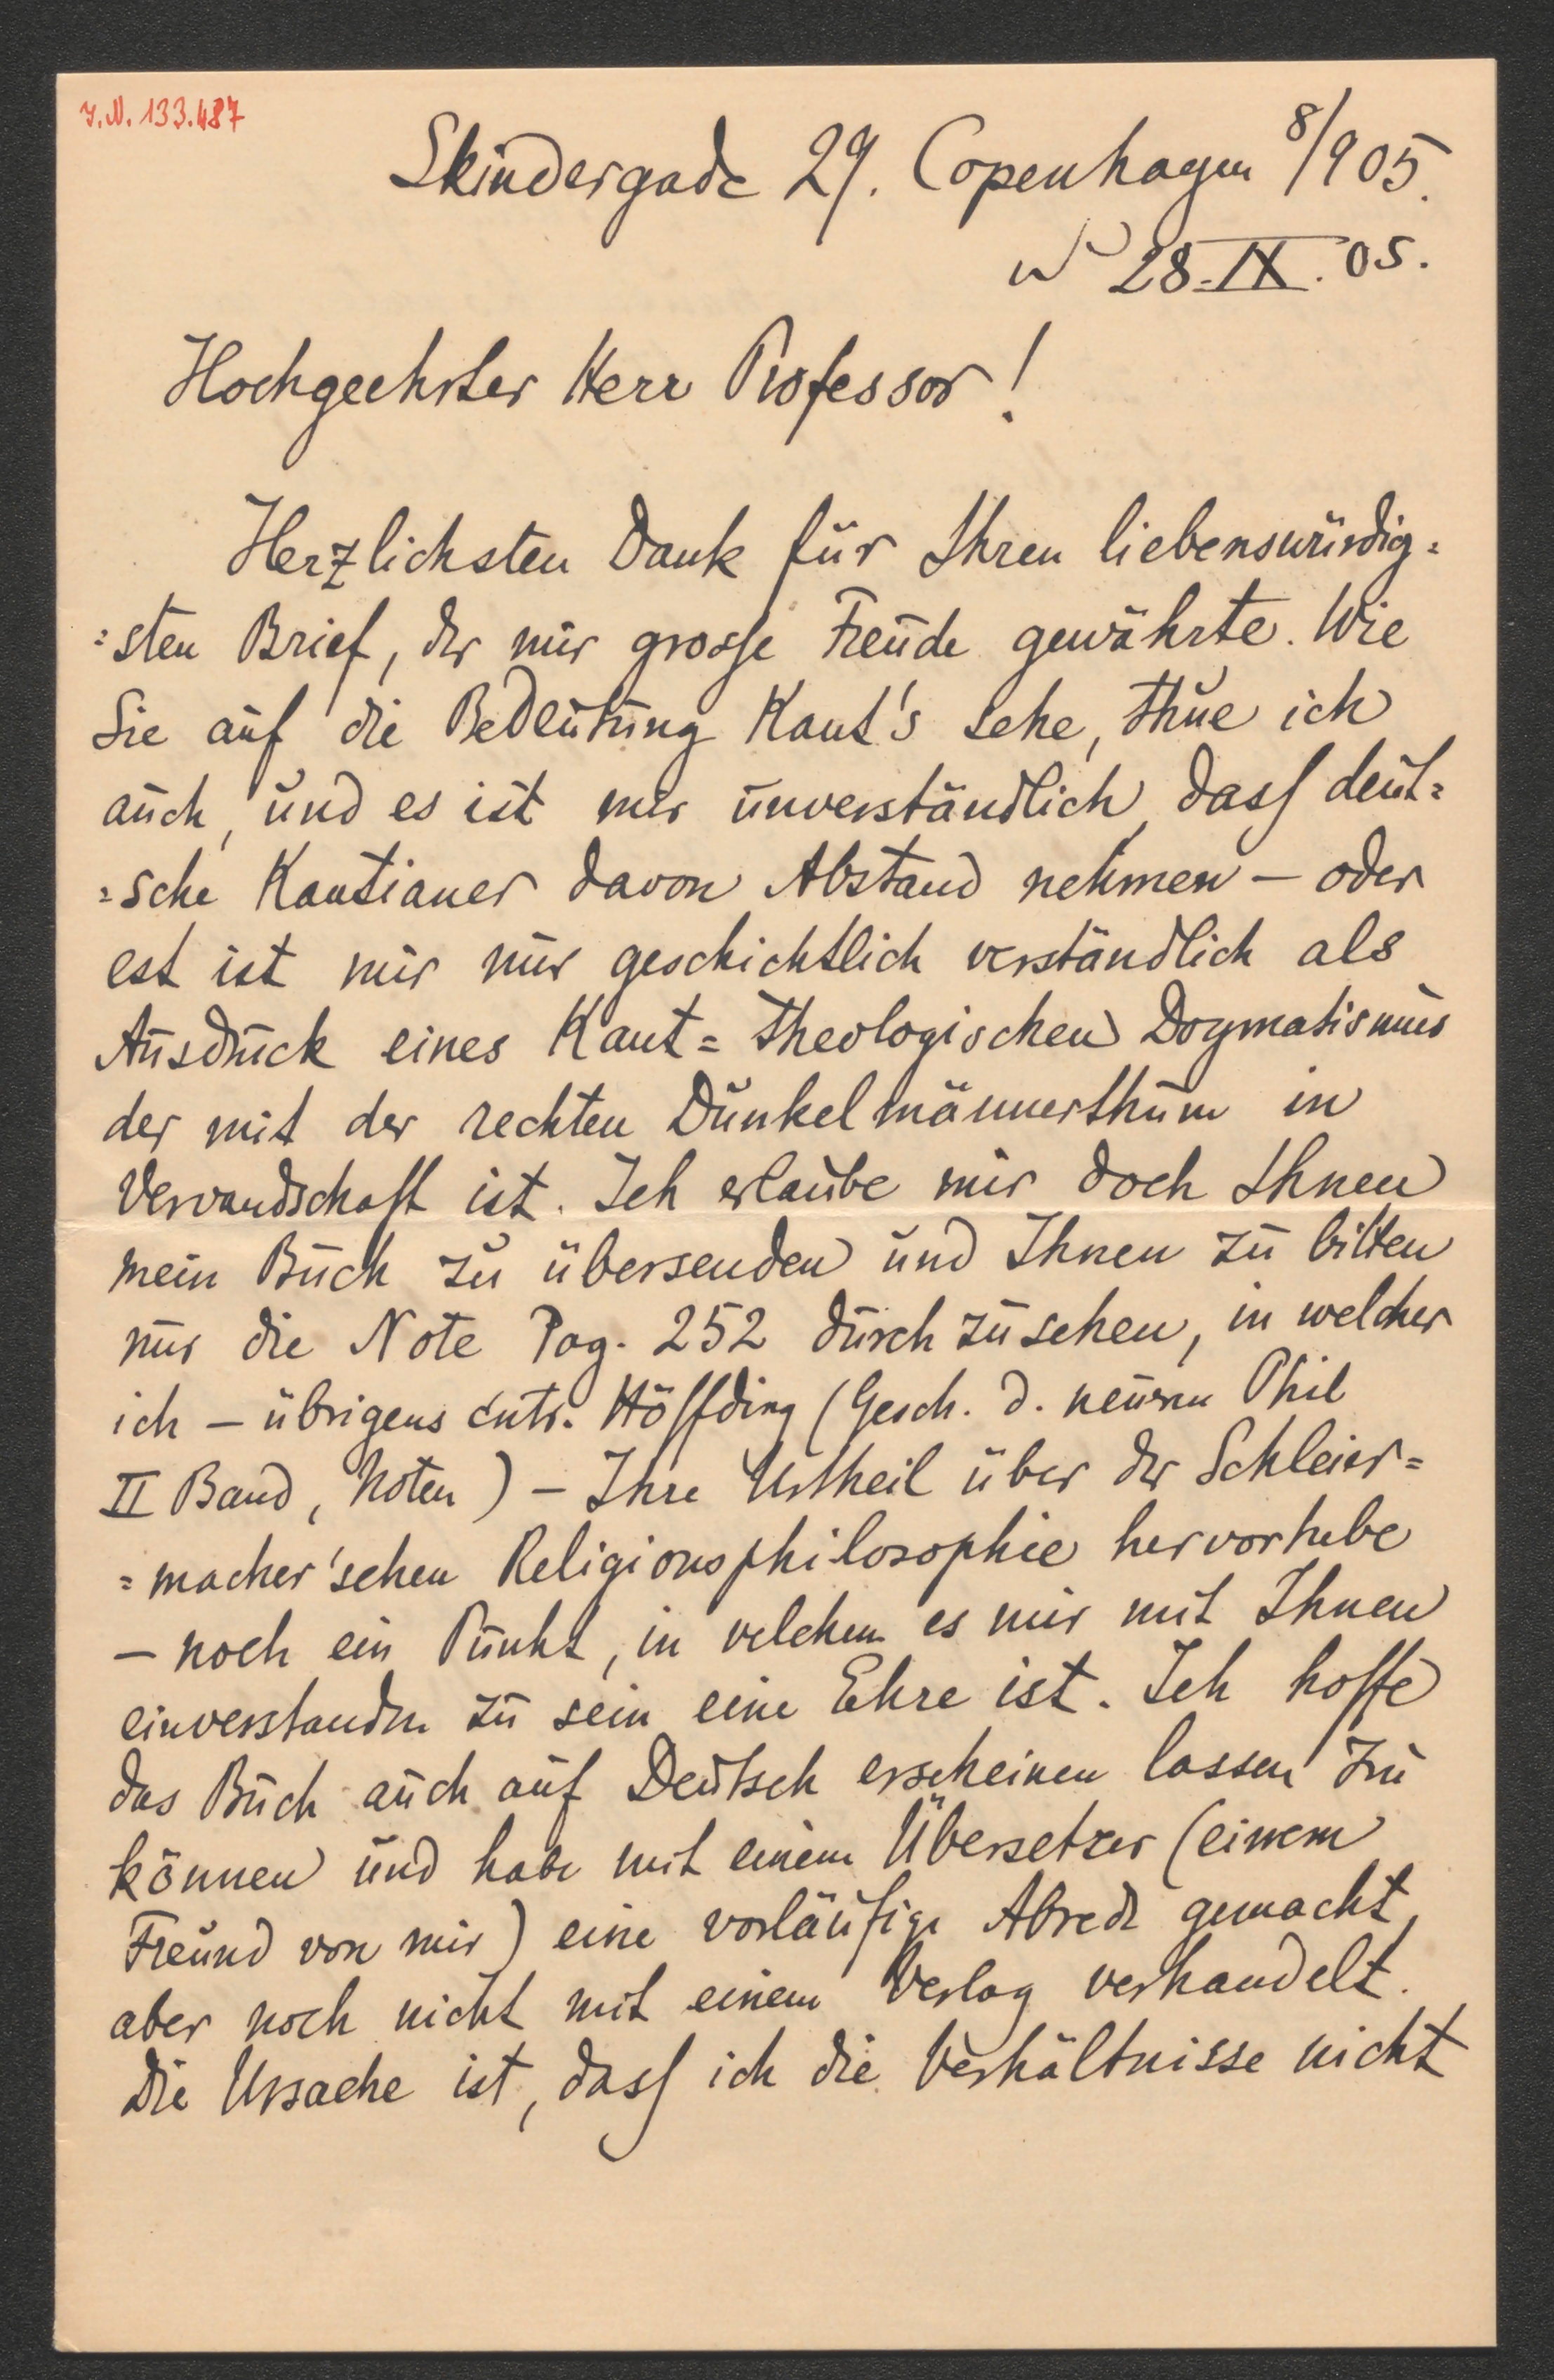 I.N. 133.487
Skindergade 29. Copenhagen 8/905.
W 28.IX.05.
Hochgeehrter Herr Professor!
Herzlichsten Dank für Ihren liebenswürdig=
=sten Brief, der mir grosse Freude gewährte. Wie
Sie auf die Bedeutung Kant's sehe, thue ich
auch, und es ist mir unverständlich, dass deut=
=sche Kantianer davon Abstand nehmen – oder
est ist mir nur geschichtlich verständlich als
Ausdruck eines Kant=theologischen Dogmatismus
der mit der rechten Dunkelmännerthum in
Vervandschaft ist. Ich erlaube mir doch Ihnen
mein Buch zu übersenden und Ihnen zu bitten
nur die Note Pag. 252 durchzusehen, in welcher
ich – übrigens cntr. Höffding (Gesch. d. neuern Phil
II Band, Noten) – Ihre Urtheil über der Schleier=
=macher'schen Religionsphilosophie hervorhebe
– noch ein Punkt, in velchem es mir mit Ihnen
einverstanden zu sein eine Ehre ist. Ich hoffe
das Buch auch auf Deutsch erscheinen lassen zu
können und habe mit einem Übersetzer (einem
Freund von mir) eine vorläufige Abrede gemacht,
aber noch nicht mit einem Verlag verhandelt.
Die Ursache ist, dass ich die Verhältnisse nicht